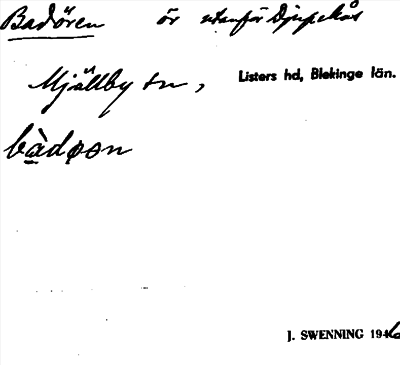 Badören ör utanför Djupekås
Mjällby sn, Listers hd, Blekinge län.
bàdøon
J. SWENNING 1946